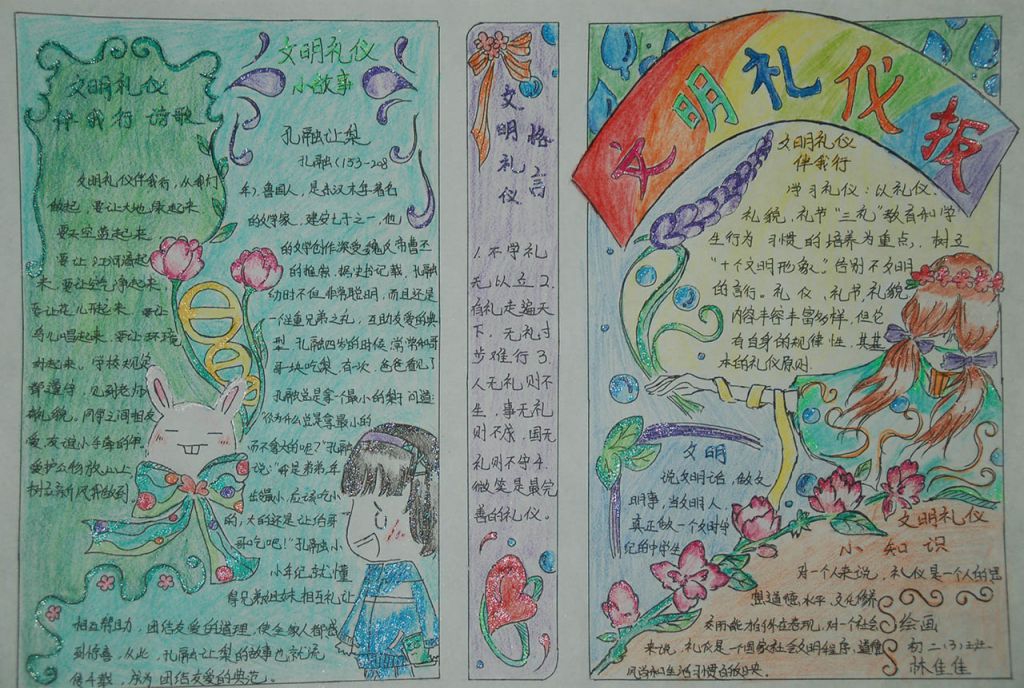 文明礼仪
伴我行 诗歌
文明礼仪伴我行，从我们
做起，要让大地绿起来
要天空蓝起来
要让江河清起来
来，要让空气净起来，
要让花儿开起来，要让
鸟儿唱起来，要让环境
好起来。学校规定
都遵守，见到老师
有礼貌，同学之间相友
爱，友谊小手
爱护公物放心上
树立新风我做到
文明礼仪
小故事
孔融让梨
孔融（153—208
年），鲁国人，是东汉末年著名
的文学家，建安七子之一，他
的文学创作深受魏文帝曹丕
的推崇。据史书记载，孔融
幼时不但非常聪明，而且还是
一个注重兄弟之礼，互助友爱的典
型。孔融四岁的时候，常常和哥
哥一块吃梨。有一次，爸爸看见了
孔融总是拿个最小的梨子问道：
“你为什么总是拿最小的
而不拿大的呢？”孔融
说：“我是弟弟，年
岁最小，应该吃小
的，大的还是让给哥
哥吃吧！”孔融小
小年纪就懂
得兄弟姐妹相互礼让
相互帮助，团结友爱的道理，使全家人都感
到惊喜，从此，孔融让梨的故事也就流
传千载，成为团结友爱的典范。
文明礼仪
格言
1.不学礼
无以立 2.
有礼走遍天
下，无礼寸
步难行 3.
人无礼则不
生，事无礼
则不成，国无
礼则不宁 4.
微笑是最完
善的礼仪。
文明礼仪报
文明礼仪
伴我行
学习礼仪：以礼仪、
礼貌、礼节“三礼”教育和学
生行为习惯的培养为重点，树立
“十个文明形象”。告别不文明
的言行。礼仪、礼节、礼貌
内容丰容丰富多样，但它
有自身的规律性，其基
本的礼仪原则
文明
说文明话，做文
明事，当文明人，
真正做一个文明世
纪的中学生
文明礼仪
小知识
对一个人来说，礼仪是一个人的思
想道德水平、文化修养
交际能力的外在表现，对一个社会
来说，礼仪是一个国家社会文明程序、道德
风尚和生活习惯的反映
绘画
初二（3）班
林佳佳